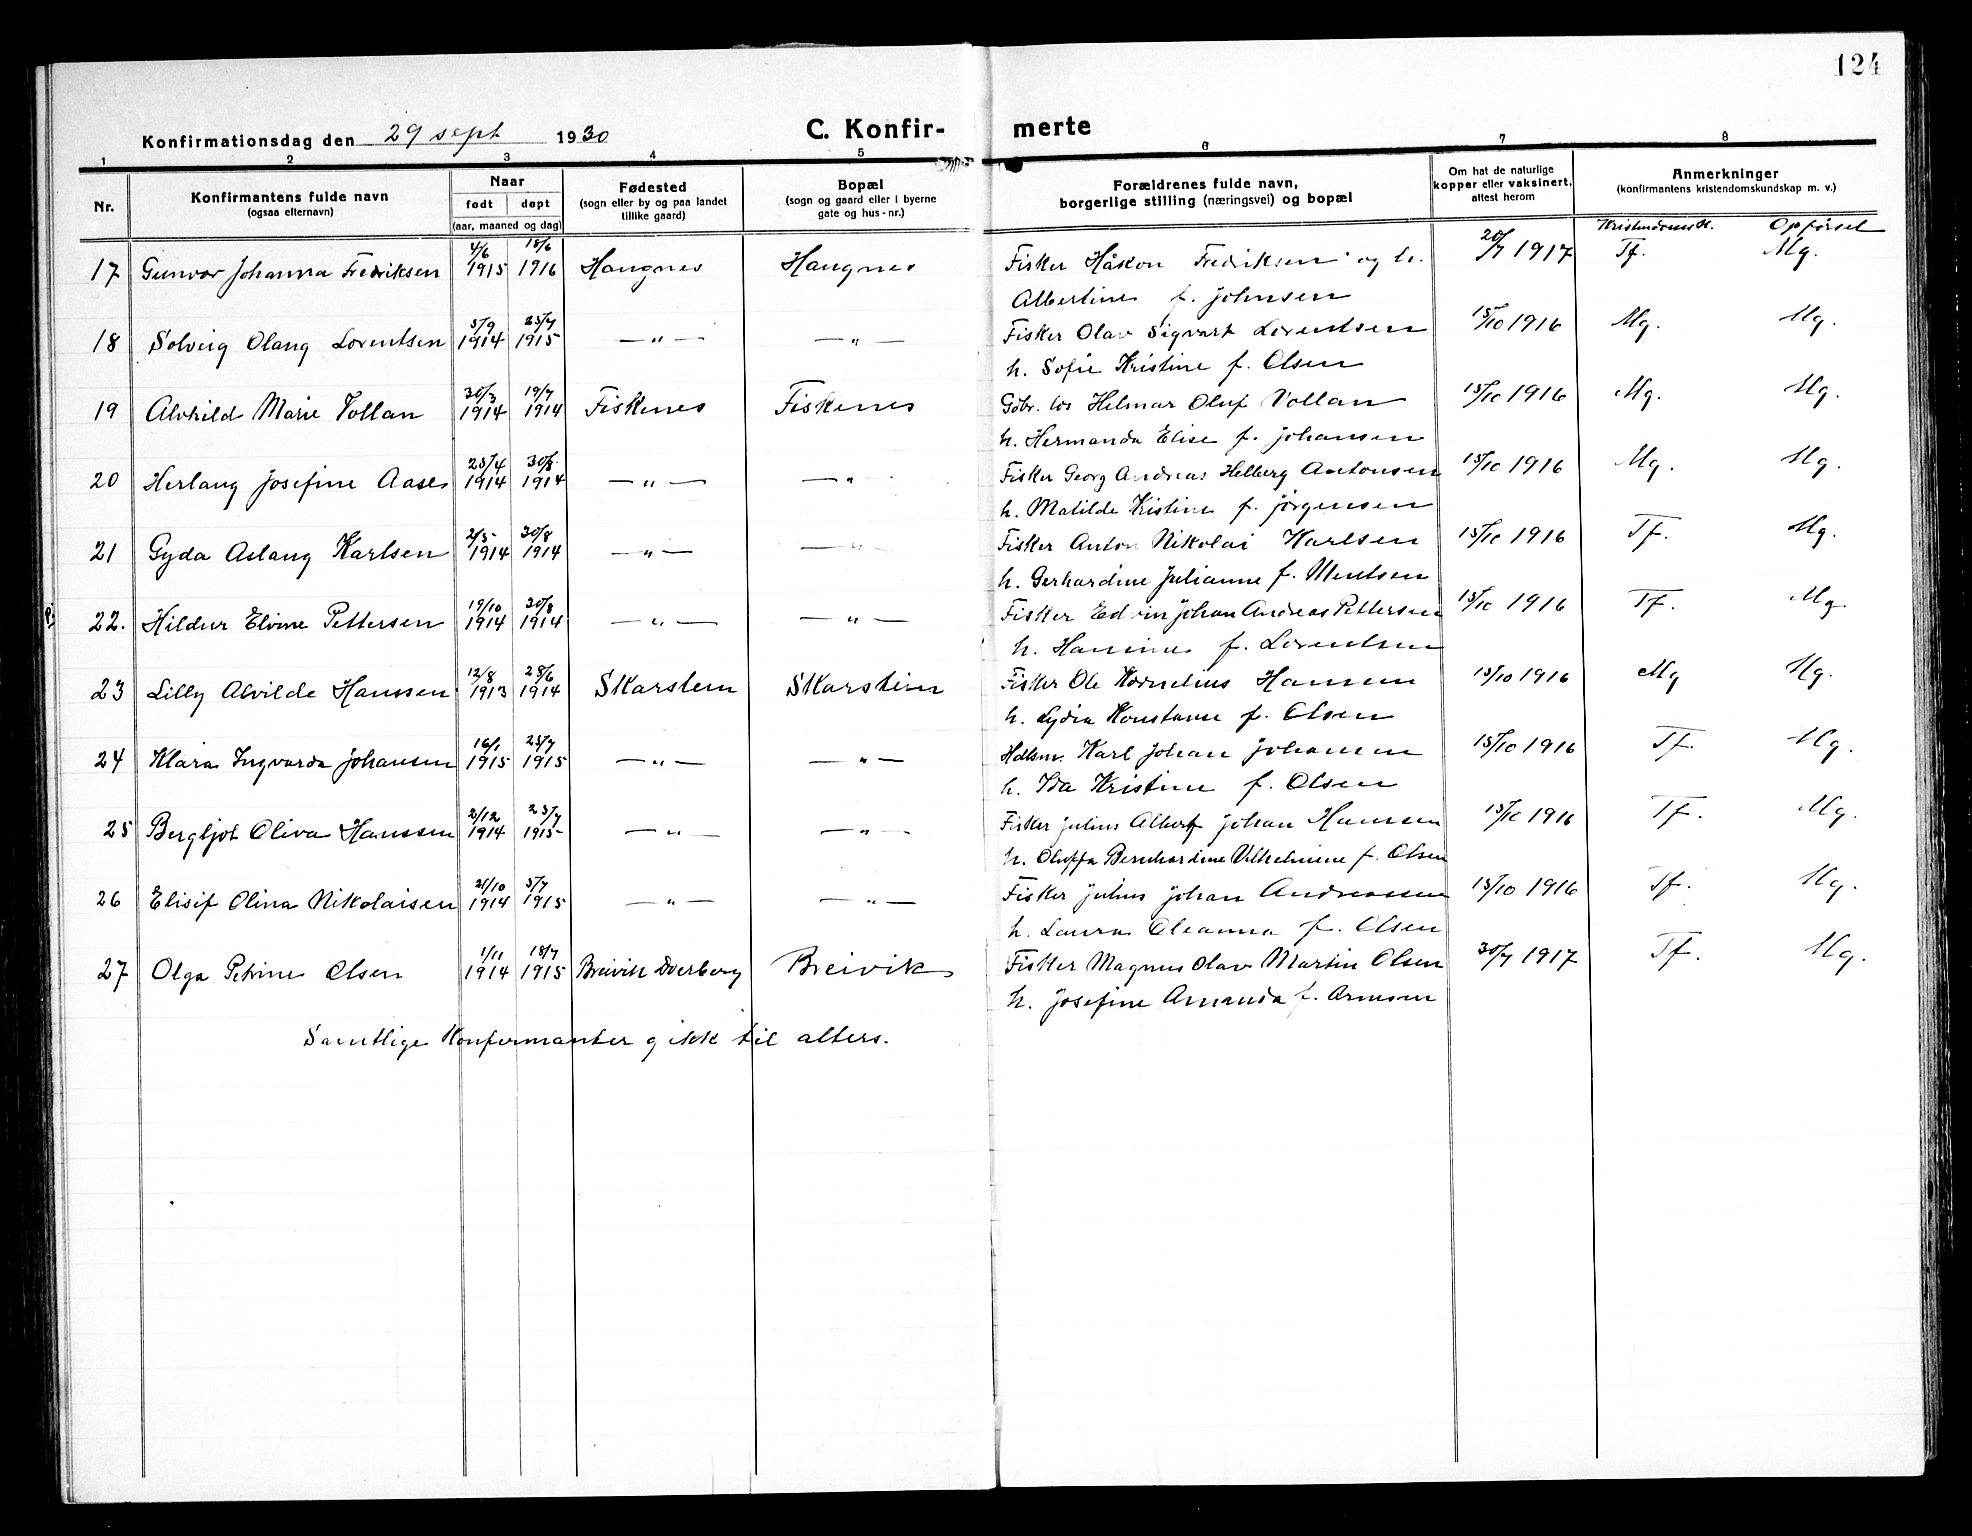 124
Konfirmationsdag den 29 sept 1930
C. Konfir- merte
1 2 3 4 5 6 7 8
Nr.
Konfirmantens fulde navn
(ogsaa efternavn)
Naar
født døpt
(aar, maaned og dag)
Fødested
(sogn eller by og paa landet
tillike gaard)
Bopæl
(sogn og gaard eller i byerne
gate og hus-nr.)
Forældrenes fulde navn,
borgerlige stilling (næringsvei) og bopæl
Om hat de naturlige
kopper eller vaksinert,
attest herom
Anmerkninger
(konfirmantens kristendomskundskap m. v.)
Kristendomsk. Opførsel
17 Gunvor Johanna Fredriksen 4/6 1915 18/6 1916 Haugnes Haugnes Fisker Håkon Fredriksen og h. 20/7 1917 Tf. Mg.
Albertine f. Johnsen
18 Solveig Olaug Lorentsen 5/9 1914 25/7 1915 —"— —"— Fisker Olav Sigvart Lorentsen 15/10 1916 Mg. Mg.
h. Sofie Kristine f. Olsen
19 Alvhild Marie Vollan 30/3 1914 19/7 1914 Fiskenes Fiskenes Gbr. Hilmar Oluf Vollan 15/10 1916 Mg. Mg.
h. Hermanda Elise f. Johansen
20 Herlaug Josefine Aases 25/4 1914 30/8 1914 —"— —"— Fisker Georg Andreas Helberg Antonsen 15/10 1916 Mg. Mg.
h. Matilde Kristine f. Jørgensen
21 Gyda Aslaug Karlsen 2/5 1914 30/8 1914 —"— —"— Fisker Anton Nikolai Karlsen 15/10 1916 Tf. Mg.
h. Gerhardine Julianne f. Mentsen
22. Hildur Elvine Pettersen 19/10 1914 30/8 1914 —"— —"— Fisker Edvin Johan Andreas Pettersen 15/10 1916 Tf. Mg.
h. Hanine f. Lorentsen
23 Lilly Alvilde Hanssen 12/8 1913 28/6 1914 Skarstein Skarstein Fisker Ole Kornelius Hansen 15/10 1916 Mg Mg.
h. Lydia Konstanse f. Olsen
24 Klara Ingvarda Johansen 16/1 1915 25/7 1915 —"— —"— Hdlsm. Karl Johan Johansen 15/10 1916 Tf. Mg.
h. Ida Kristine f. Olsen
25 Bergljot Oliva Hanssen 2/12 1914 25/7 1915 —"— —"— Fisker Julius Albert Johan Hansen 15/10 1916 Tf. Mg.
h. Oluffa Bernhardine Vilhelmine f. Olsen
26 Elisif Olina Nikolaisen 21/10 1914 5/7 1915 —"— —"— Fisker Julius Johan Andreassen 15/10 1916 Tf. Mg.
h. Laura Oleanna f. Olsen
27 Olga Petrine Olsen 1/11 1914 18/7 1915 Breivik Dverberg Breivik Fisker Magnus Olav Martin Olsen 30/7 1917 Tf. Mg.
h. Josefine Amanda f. Arnesen
Samtlige Konfirmanter gikk til alters.